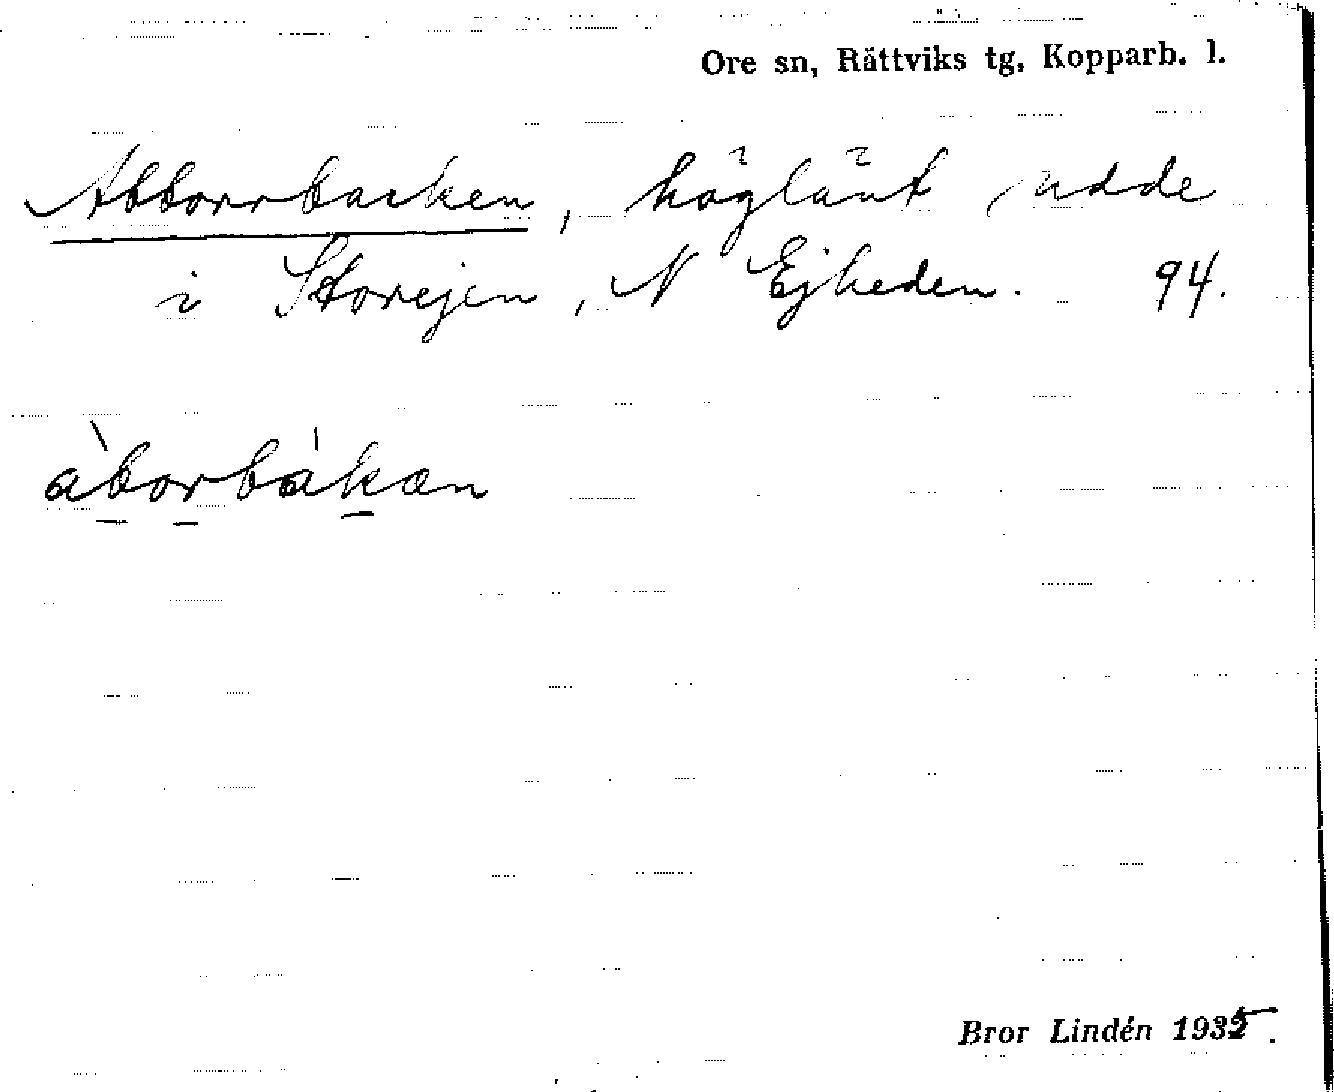 Ore sn, Rättviks tg, Kopparb. l.
Abborrbacken, höglänt udde
i Storejen, N Ejheden. 94.
àborbákæn
Bror Lindén 1935.